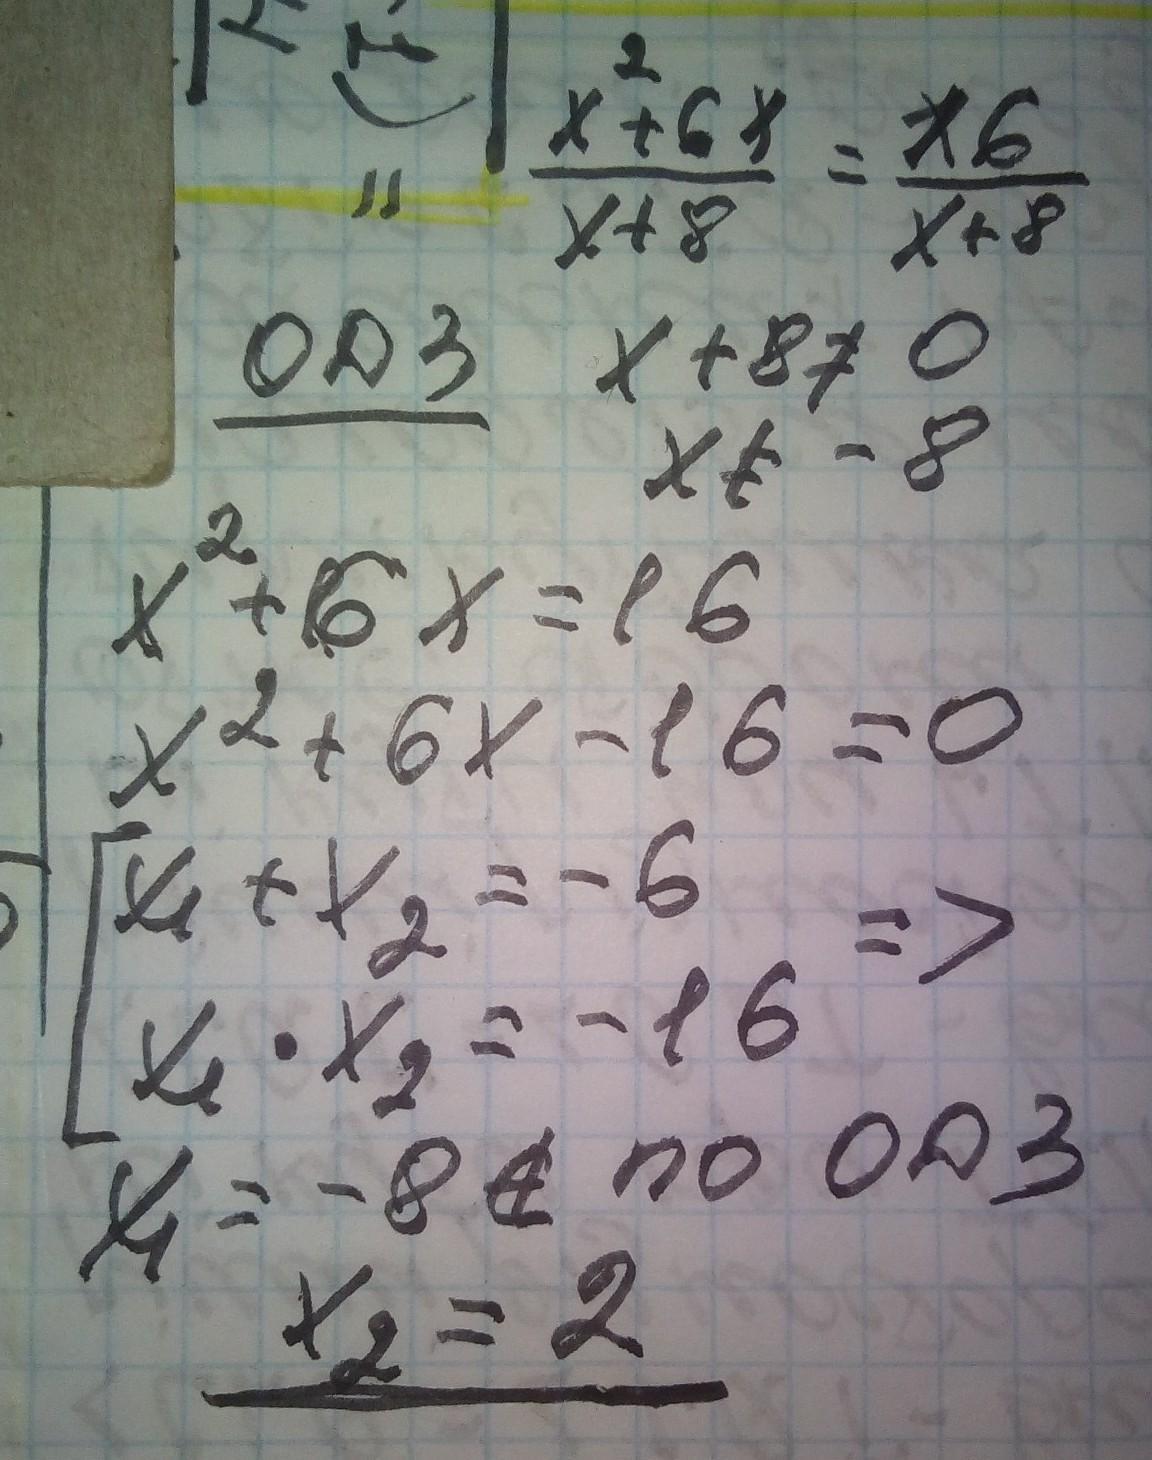 x²+6x/x+8 = 16/x+8
ОДЗ x+8≠0
x≠-8
x²+6x=16
x²+6x-16=0
x₁+x₂=-6 =>
x₁·x₂=-16
x₁=-8∉ по ОДЗ
x₂=2